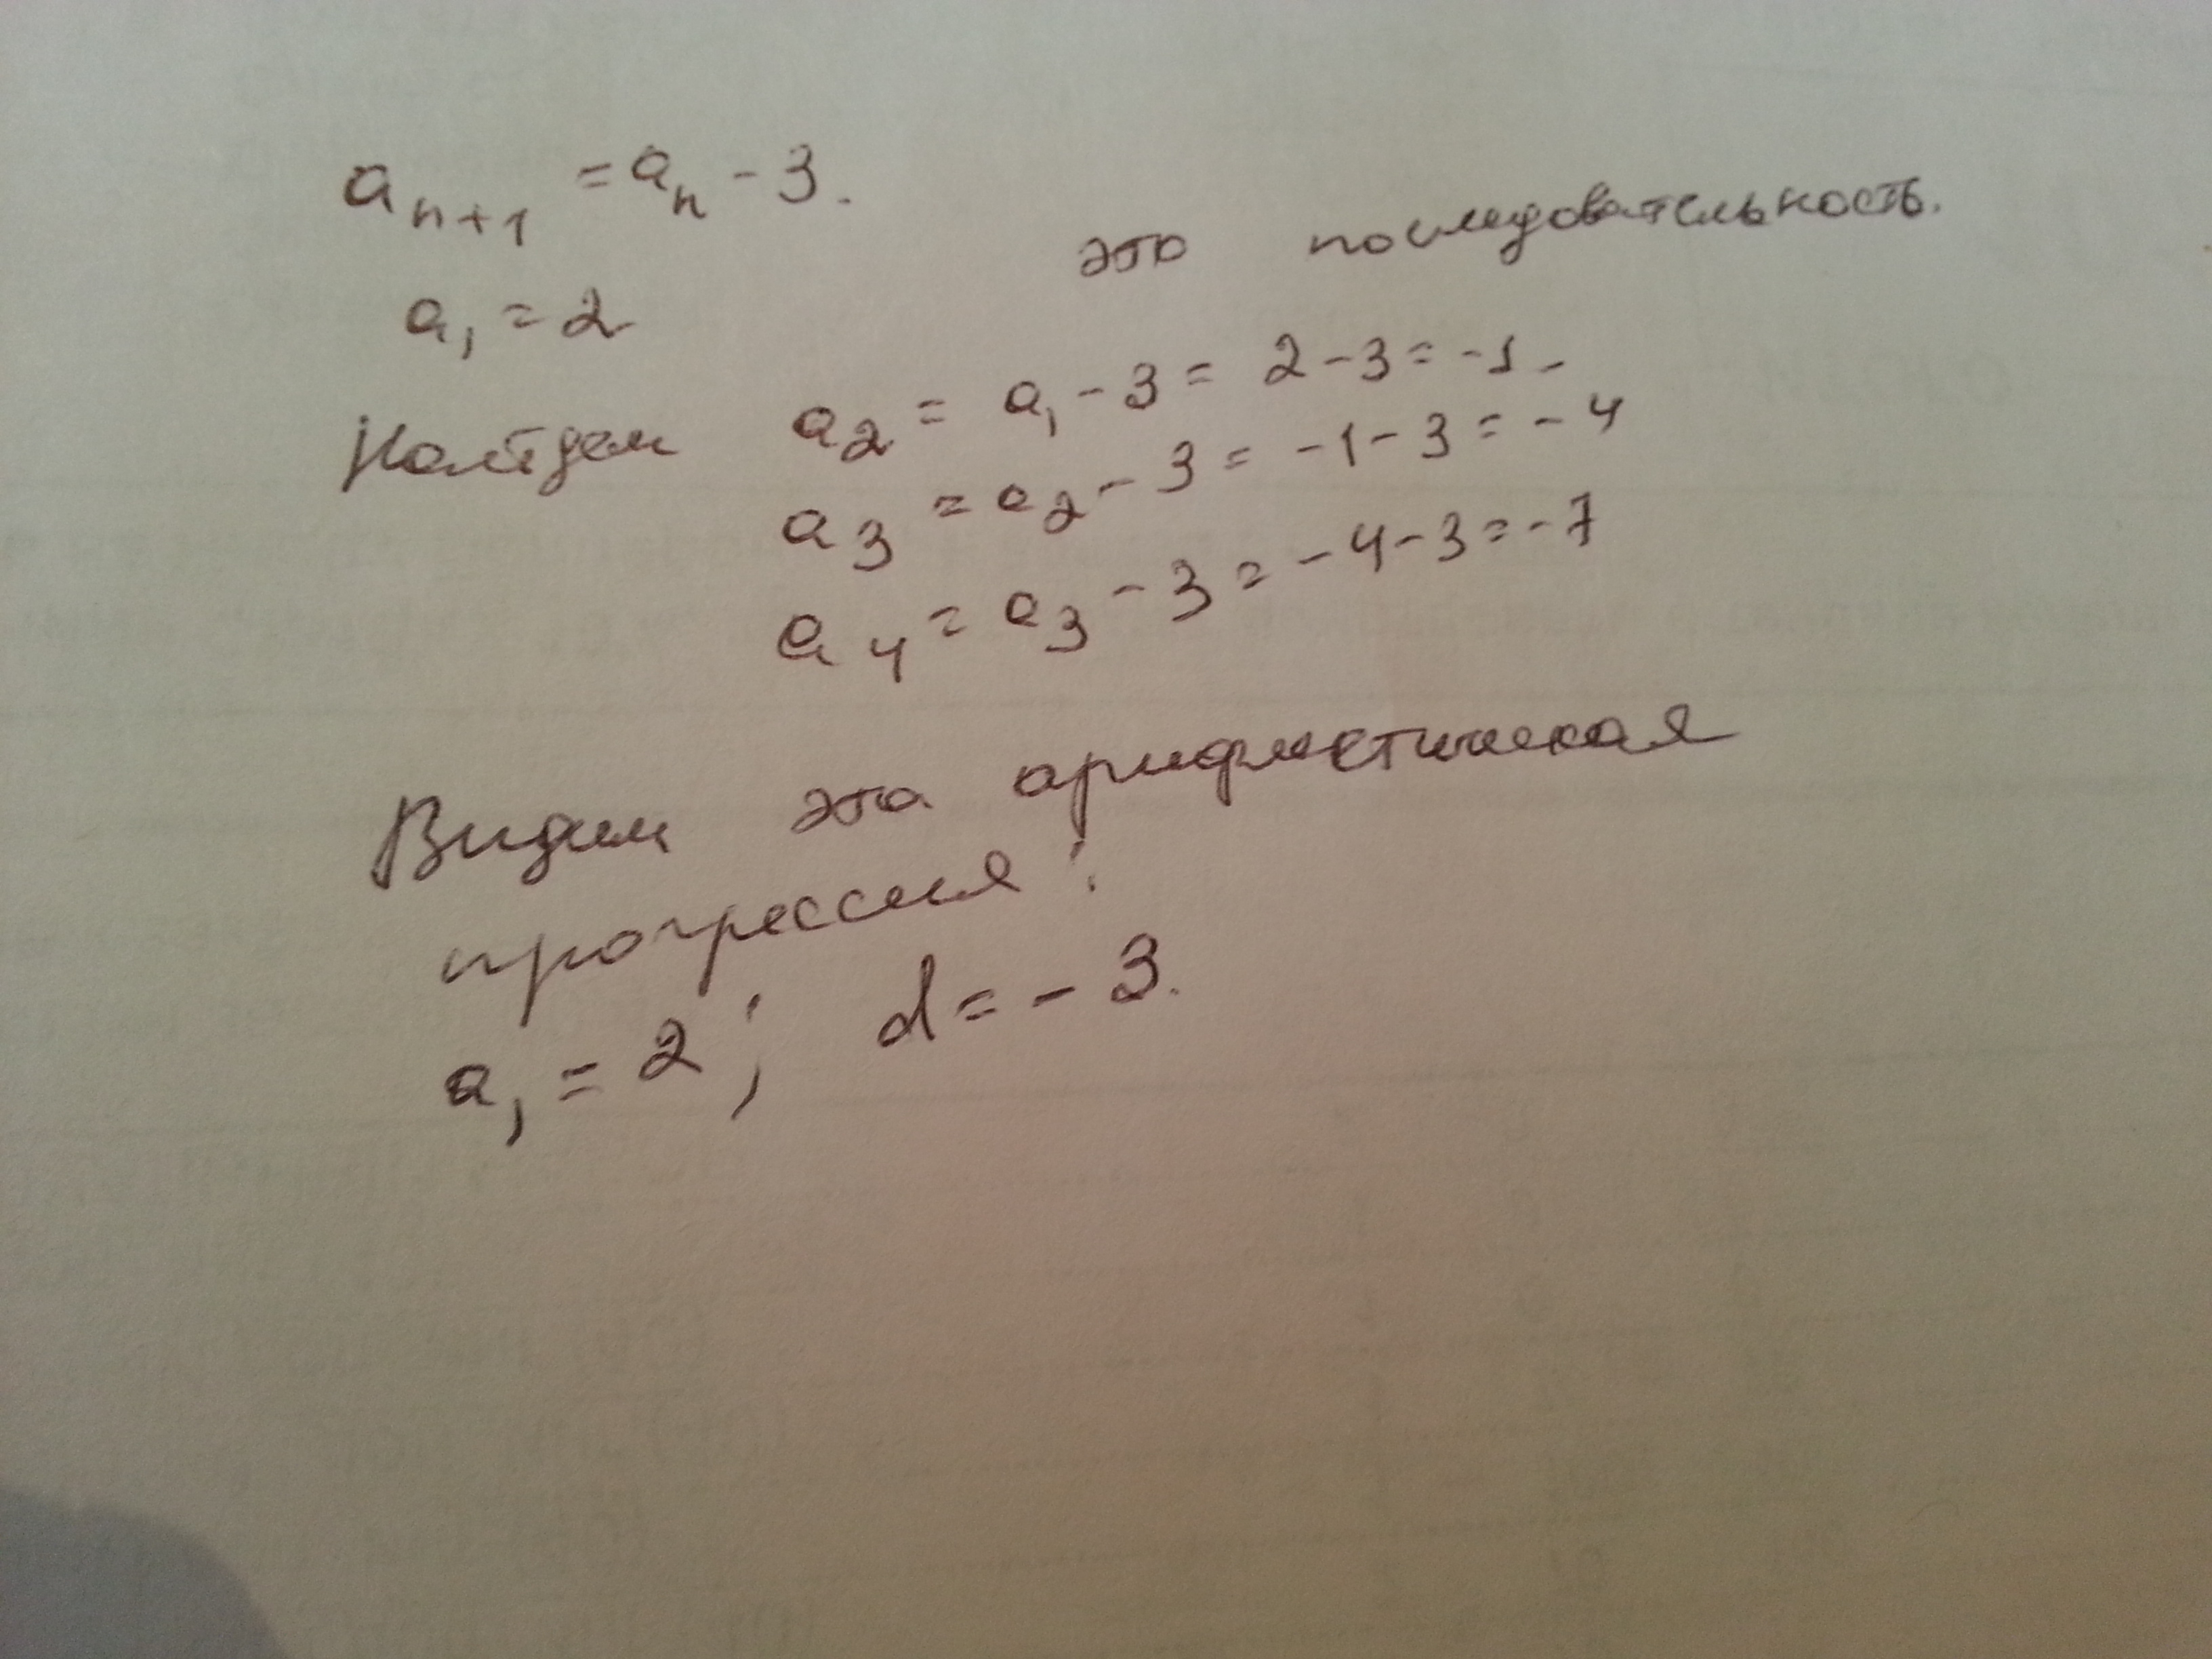 a_{n+1} = a_n - 3.
это последовательность.
a_1 = 2
Найдем a_2 = a_1 - 3 = 2 - 3 = -1.
a_3 = a_2 - 3 = -1 - 3 = -4
a_4 = a_3 - 3 = -4 - 3 = -7
Видим эта арифметическая
прогрессия:
a_1 = 2; d = -3.